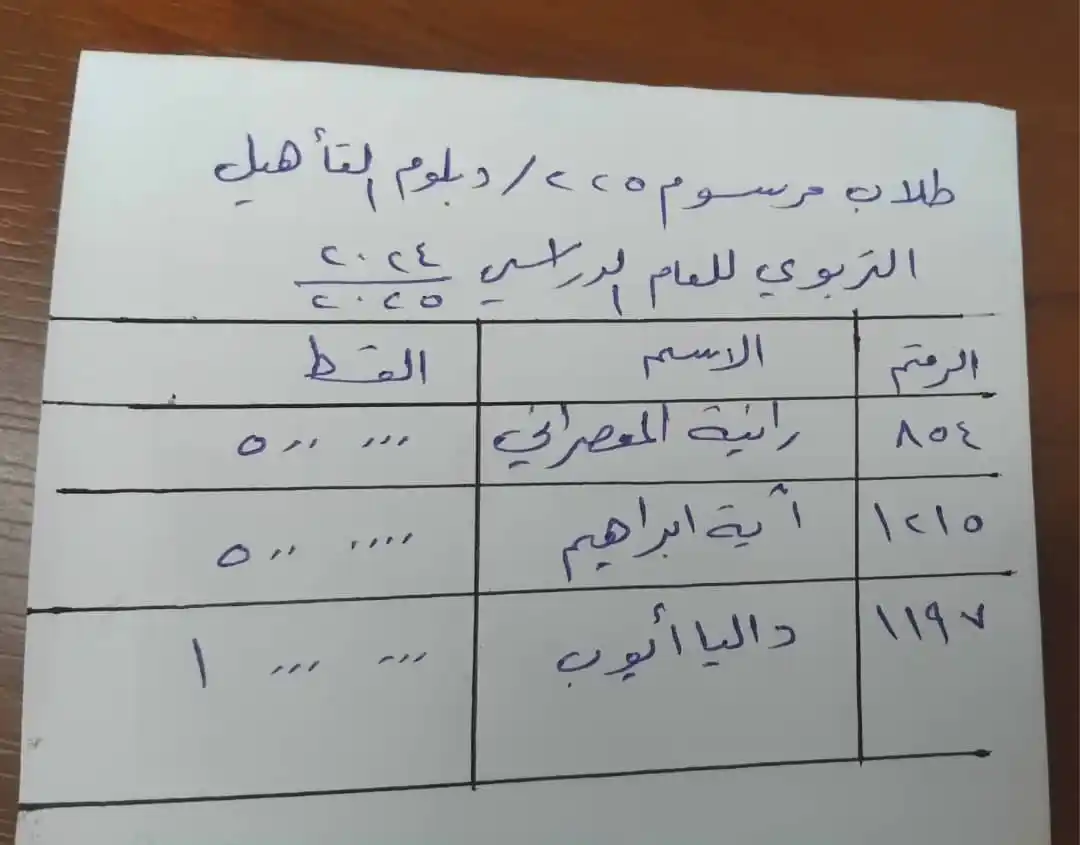 طلاب مرسوم ٢٢٥/دبلوم التأهيل
التربوي للعام الدراسي ٢٠٢٤/٢٠٢٥
الرقم الاسم القسط
٨٥٤ رانية المعصراني ٥٠٠ ٠٠٠
١٢١٥ آية ابراهيم ٥٠٠ ٠٠٠٠
١١٩٧ داليا أيوب ١ ٠٠٠ ٠٠٠